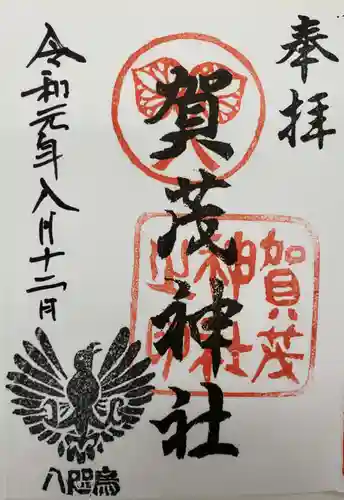 奉拝
賀茂神社
賀茂
神社
之印
令和元年八月十二日
八咫烏